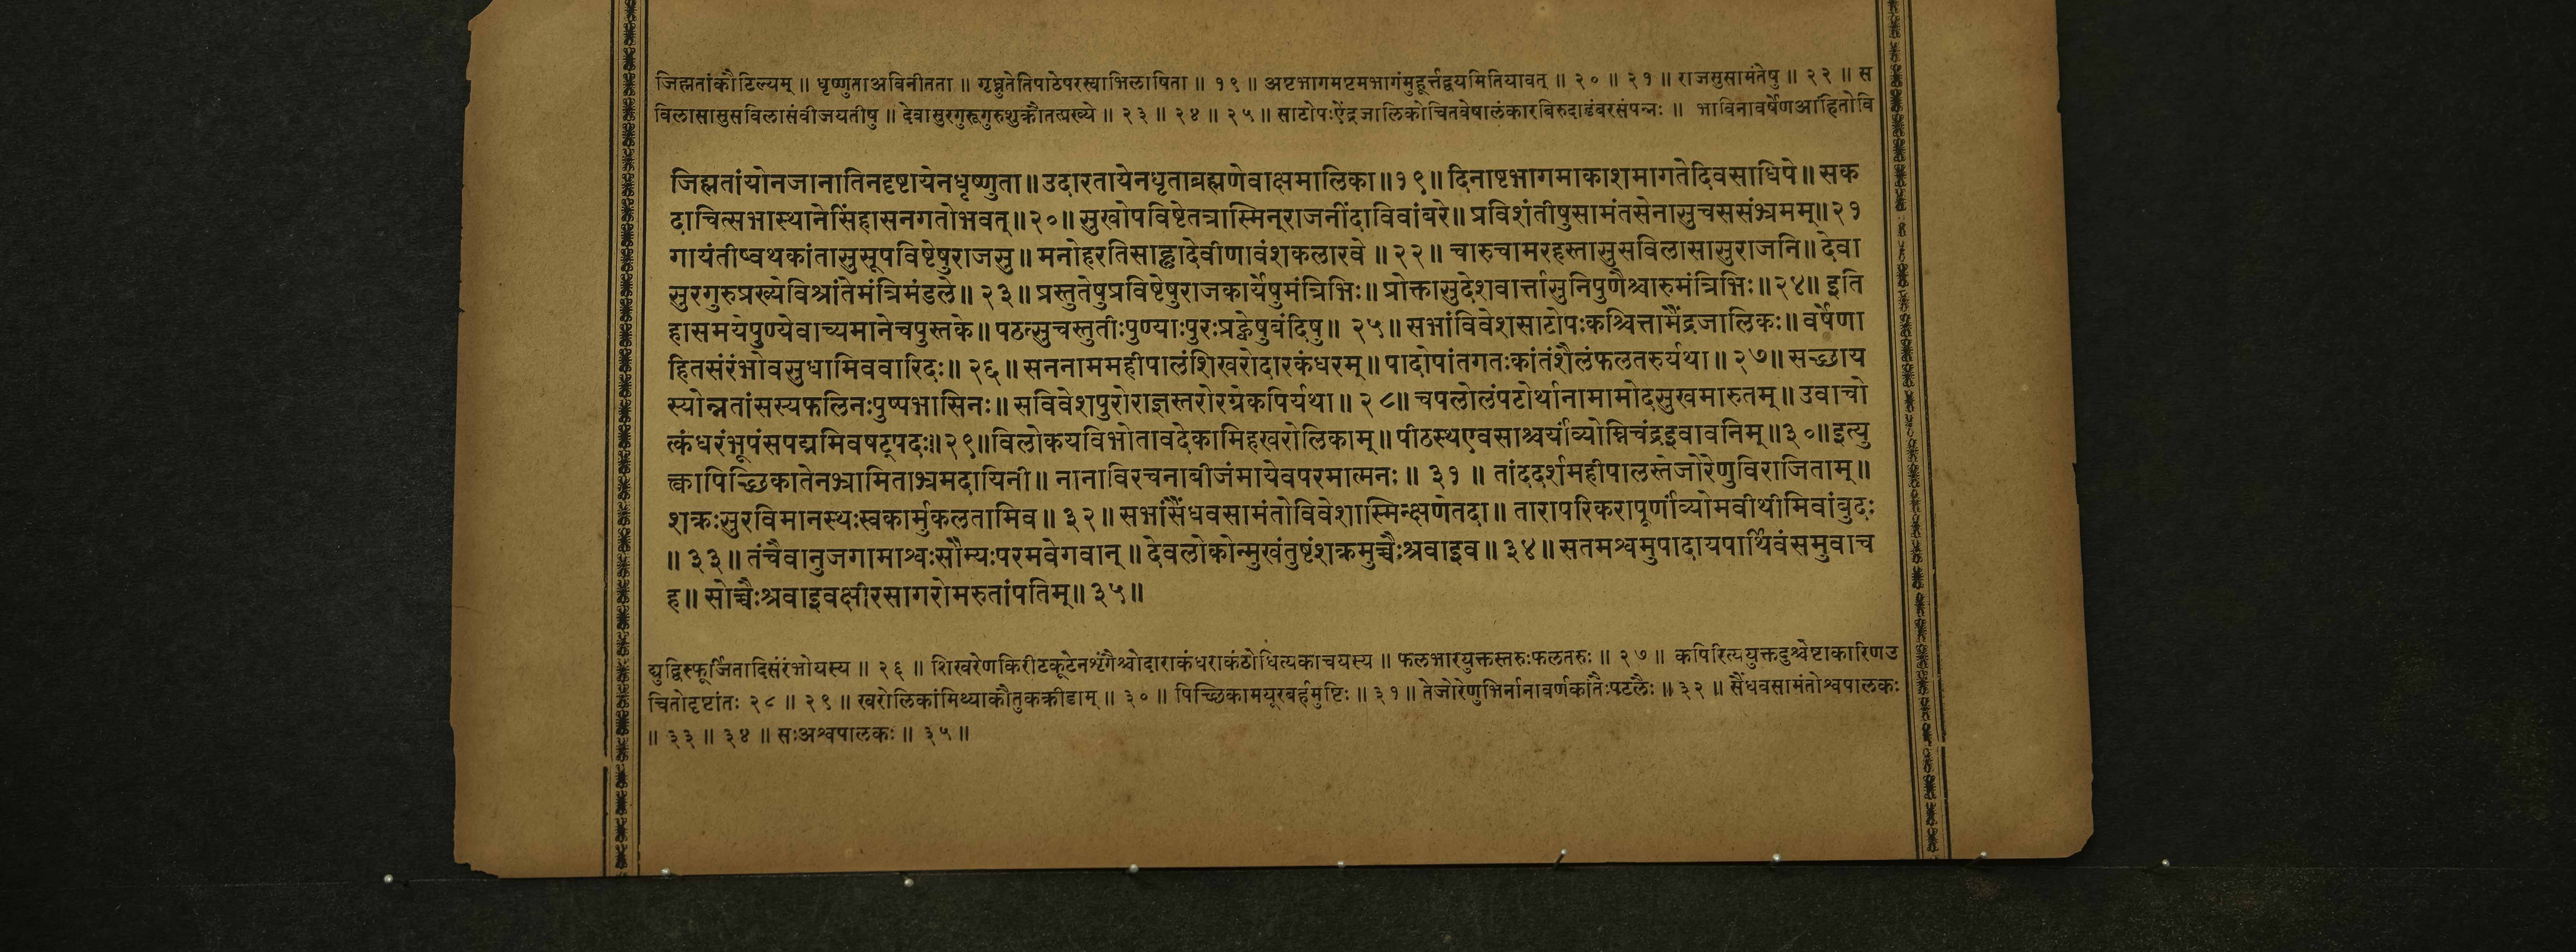 जिह्मतांकौटिल्यम् ॥ धृष्णुताअविनीतता ॥ गृध्नुतेतिपाठेपरस्वाभिलाषिता ॥ १९ ॥ अष्टभागमष्टमभागंमुहूर्त्तद्वयमितियावत् ॥ २० ॥ २१ ॥ राजसुसामंतेषु ॥ २२ ॥ स
विलासासुसविलासंवीजयतीषु ॥ देवासुरगुरूगुरुशुक्रौतत्प्रख्ये ॥ २३ ॥ २४ ॥ २५ ॥ साटोपःऐंद्रजालिकोचितवेषालंकारबिरुदाडंबरसंपन्नः ॥ भाविनावर्षेणआहितोवि
जिह्मतांयोनजानातिनदृष्टायेनधृष्णुता॥उदारतायेनधृताब्रह्मणेवाक्षमालिका॥१९॥ दिनाष्टभागमाकाशमागतेदिवसाधिपे॥ सक
दाचित्सभास्थानेसिंहासनगतोभवत्॥२०॥ सुखोपविष्टेतत्रास्मिन्राजनींदाविवांबरे॥ प्रविशंतीषुसामंतसेनासुचससंभ्रमम्॥२१
गायंतीष्वथकांतासुसूपविष्टेषुराजसु॥ मनोहरतिसाह्लादेवीणावंशकलारवे ॥ २२॥ चारुचामरहस्तासुसविलासासुराजनि॥ देवा
सुरगुरुप्रख्येविश्रांतेमंत्रिमंडले॥ २३॥ प्रस्तुतेषुप्रविष्टेषुराजकार्येषुमंत्रिभिः॥ प्रोक्तासुदेशवार्त्तासुनिपुणैश्चारुमंत्रिभिः॥२४॥ इति
हासमयेपुण्येवाच्यमानेचपुस्तके॥ पठत्सुचस्तुतीःपुण्याःपुरःप्रह्वेषुबंदिषु॥ २५॥ सभांविवेशसाटोपःकश्चित्तामैंद्रजालिकः॥ वर्षेणा
हितसंरंभोवसुधामिववारिदः॥ २६॥ सननाममहीपालंशिखरोदारकंधरम्॥ पादोपांतगतःकांतंशैलंफलतरुर्यथा॥ २७॥ सच्छाय
स्योन्नतांसस्यफलिनःपुष्पभासिनः॥ सविवेशपुरोराज्ञस्तरोरग्रेकपिर्यथा॥ २८॥ चपलोलंपटोर्थानामामोदसुखमारुतम्॥ उवाचो
त्कंधरंभूपंसपद्ममिवषट्पदः॥२९॥विलोकयविभोतावदेकामिहखरोलिकाम्॥ पीठस्थएवसाश्चर्यांव्योम्निचंद्रइवावनिम्॥३०॥इत्यु
त्क्वापिच्छिकातेनभ्रामिताभ्रमदायिनी॥ नानाविरचनाबीजंमायेवपरमात्मनः॥ ३१ ॥ तांददर्शमहीपालस्तेजोरेणुविराजिताम्॥
शक्रःसुरविमानस्थःस्वकार्मुकलतामिव॥ ३२॥ सभांसैंधवसामंतोविवेशास्मिन्क्षणेतदा॥ तारापरिकरापूर्णांव्योमवीथीमिवांबुदः
॥ ३३॥ तंचैवानुजगामाश्वःसौम्यःपरमवेगवान्॥ देवलोकोन्मुखंतुष्टंशक्रमुच्चैःश्रवाइव॥ ३४॥ सतमश्वमुपादायपार्थिवंसमुवाच
ह॥ सोच्चैःश्रवाइवक्षीरसागरोमरुतांपतिम्॥ ३५॥
द्युद्विस्फूर्जितादिसंरंभोयस्य ॥ २६ ॥ शिखरेणकिरीटकूटेनशृंगैश्चोदाराकंधराकंठोधित्यकाचयस्य ॥ फलभारयुक्तस्तरुःफलतरुः ॥ २७॥ कपिरित्ययुक्तदुश्चेष्टाकारिणउ
चितोदृष्टांतः २८ ॥ २९ ॥ खरोलिकांमिथ्याकौतुकक्रीडाम् ॥ ३० ॥ पिच्छिकामयूरबर्हमुष्टिः ॥ ३१॥ तेजोरेणुभिर्नानावर्णकांतैःपटलैः ॥ ३२ ॥ सैंधवसामंतोश्वपालकः
॥ ३३ ॥ ३४ ॥ सःअश्वपालकः ॥ ३५ ॥